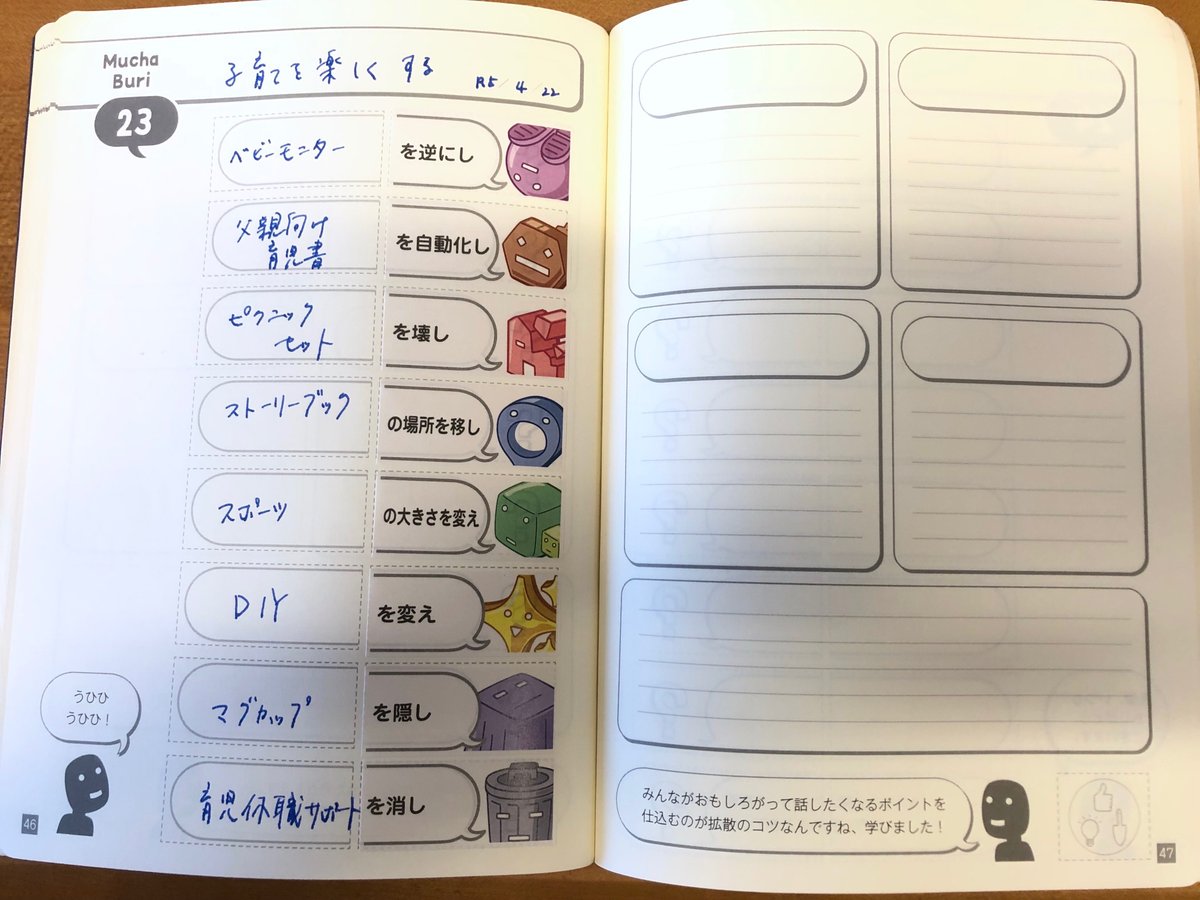 Mucha
Buri
23
子育てを楽しくする
R5/4/22
ベビーモニター
を逆にし
父親向け
育児書
を自動化し
ピクニック
セット
を壊し
ストーリーブック
の場所を移し
スポーツ
の大きさを変え
DIY
を変え
マグカップ
を隠し
育児休職サポート
を消し
うひひ
うひひ！
46
みんながおもしろがって話したくなるポイントを
仕込むのが拡散のコツなんですね、学びました！
47